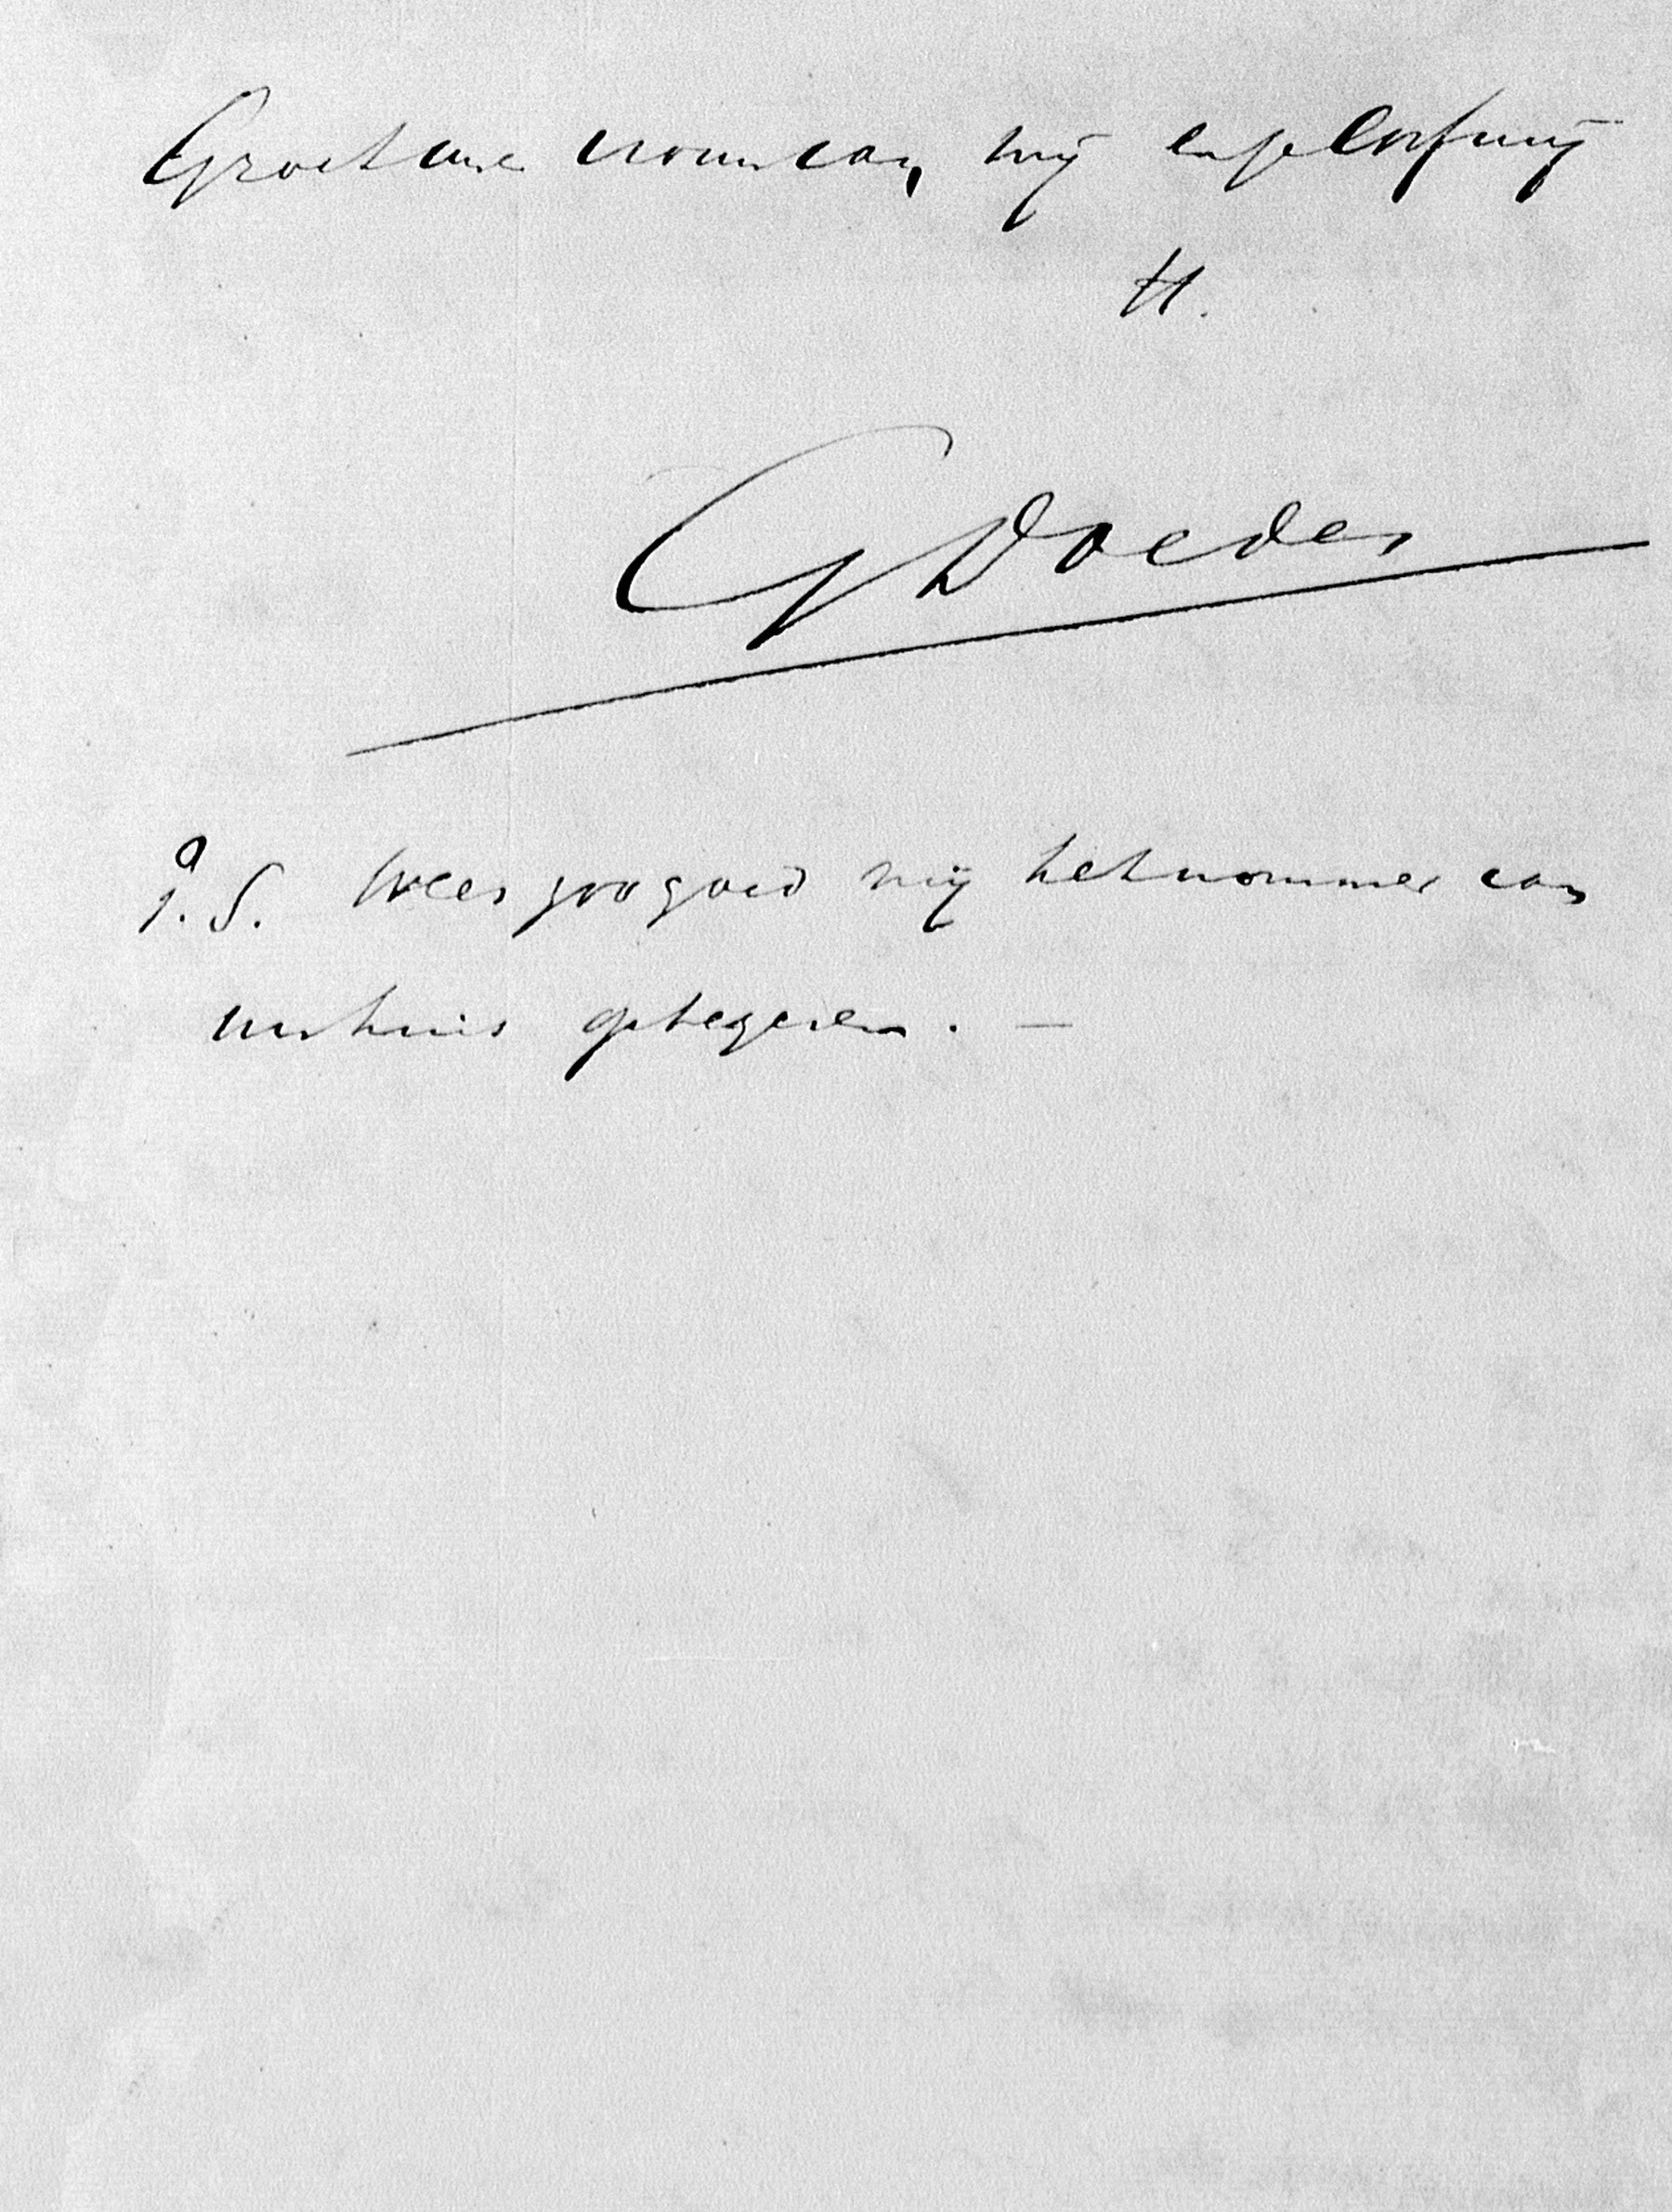 Groet uwe vrouw van mij en geloof mij
tt.
G Doedes
P.S. Wees zoo goed mij het nommer van
uw huis op te geven. —